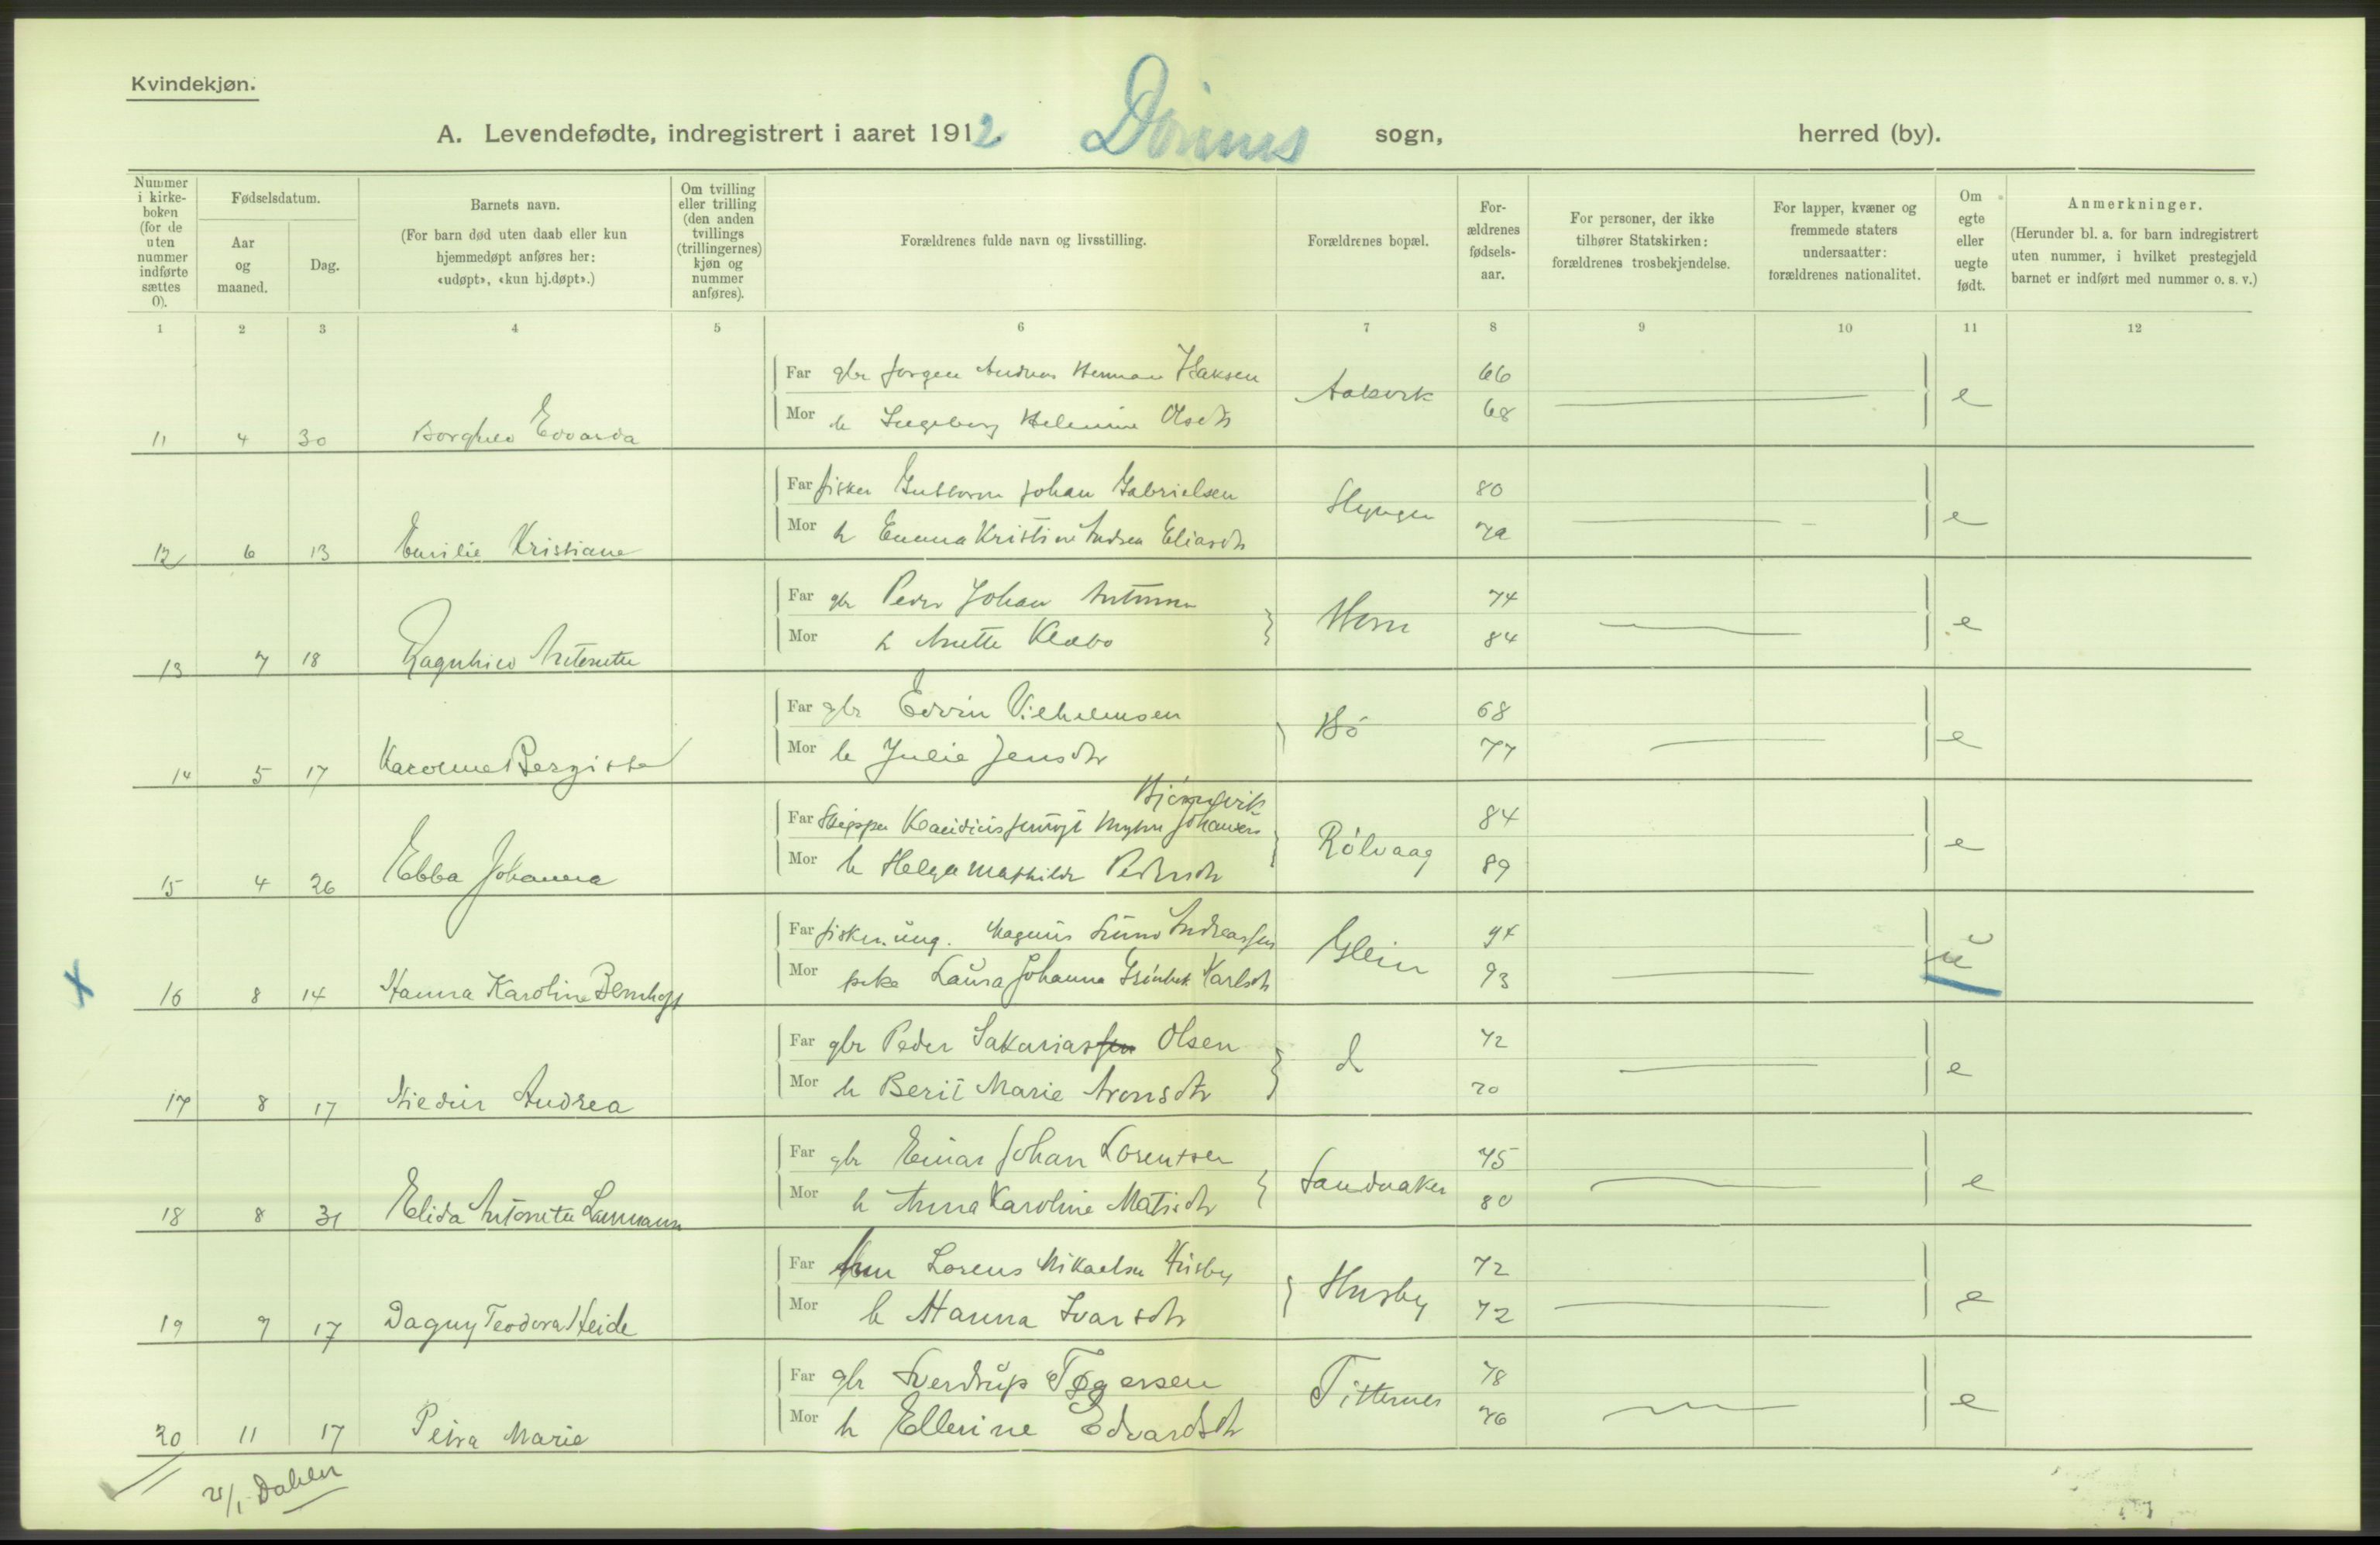 Kvindekjøn.
A. Levendefødte, indregistrert i aaret 1912. Dönnes sogn, herred (by).
Nummer i kirke-boken (for de uten nummer indførte sættes 0).
Fødselsdatum.
Aar og maaned.
Dag.
Barnets navn.
(For barn død uten daab eller kun hjemmedøpt anføres her: «udøpt», «kun hj.døpt».)
Om tvilling eller trilling (den anden tvillings (trillingernes) kjøn og nummer anføres).
Forældrenes fulde navn og livsstilling.
Forældrenes bopæl.
For-ældrenes fødsels-aar.
For personer, der ikke tilhører Statskirken: forældrenes trosbekjendelse.
For lapper, kvæner og fremmede staters undersaatter: forældrenes nationalitet.
Om egte eller uegte født.
Anmerkninger.
(Herunder bl. a. for barn indregistrert uten nummer, i hvilket prestegjeld barnet er indført med nummer o. s. v.)
1 2 3 4 5 6 7 8 9 10 11 12
Far gbr Jørgen Andreas Herman 66
Mor h Ingeborg Helmine Olsdtr 68 e
11 4 30 Borghild Edvarda
Far fisker Guttorm Johan Gabrielsen 80
Mor h Emma Kristine Andrea Eliasdtr e
12 6 13 Emilie Kristiane
Far gbr Peder Johan Antonsen Horn 74
Mor h Anette Klæbo 84 e
13 7 18 Ragnhild Antonette
Far gbr Edvin Vilhelmsen Bö 68
Mor h Julie Jensdtr 77 e
14 5 17 Karoline Bergitte
Far Skipper Johansen Rölvaag 84
Mor h Helga Mathilde Pedersdtr 89 e
15 4 26 Ebba Johanna
Far fisker. ung. Magnus Andreassen Glein
Mor pike Laura Johanna Karlsdtr 93 u
16 8 14 Hanna Karoline Bernhoff
Far gbr Peder Sakariassen Olsen d 72
Mor h Berit Marie Aronsdtr 70 e
17 8 17 Andrea
Far gbr Einar Johan Lorentsen Sandaaker 75
Mor h Anna Karoline Matisdtr 80 e
18 8 31 Elida Antonette
Far Lorens Mikaelsen Husby Husby 72
Mor h Hanna Ivarsdtr 72 e
19 9 17 Dagny Teodora Heide
Far gbr Sverdrup Tøgersen Titternes 78
Mor h Ellerine Edvardsdtr 76 e
20 11 17 Petra Marie
21/1 Dahlen